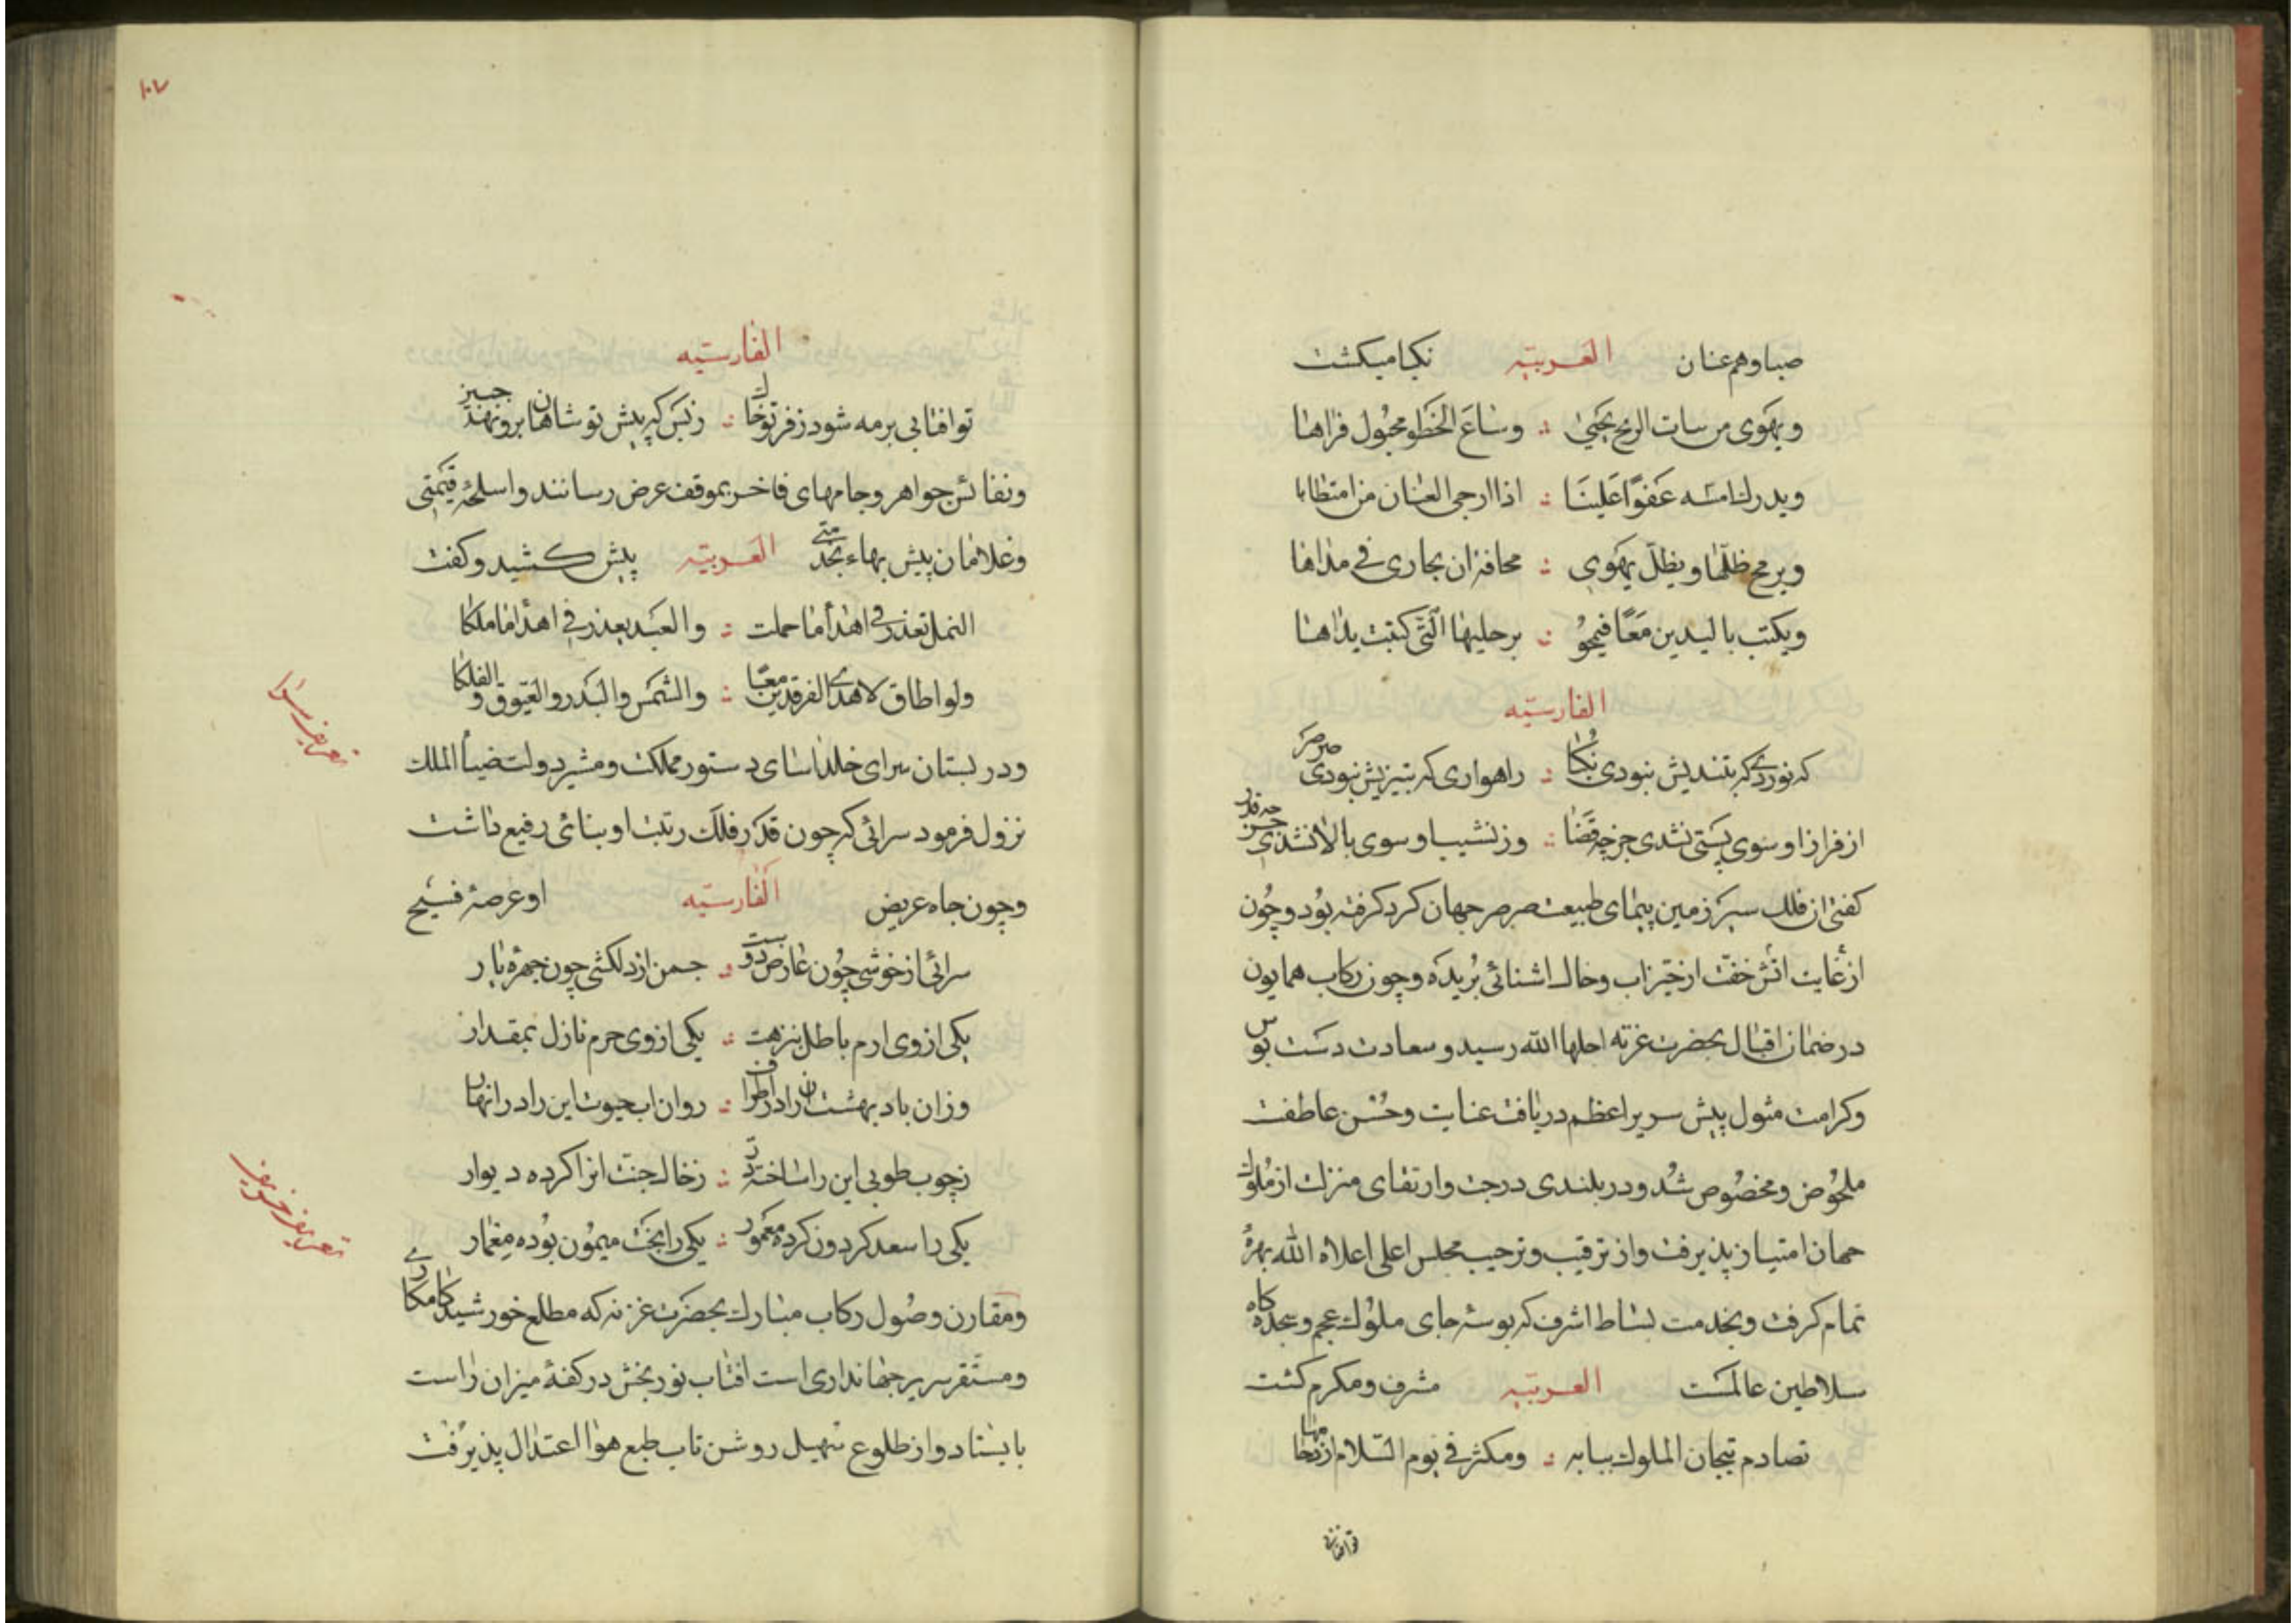 صبا و هم عنان العربیّه نکبا میکشت
ویهوی مرسات الریح یجی ∴ وساع الخطو مجبول فراها
ویدرك امسه عفوًا علینا ∴ اذا ارجی العنان من امتطاها
ویرمح ظلّها ویظلّ یهوی ∴ محافة ان یجاری فی مداها
ویکتب بالیدین معًا فیمحو ∴ برجلیها الّتی کتبت یداها
الفارسیّه
که نوردی که بتندیش نبودی نکبا ∴ راهواری که بتیزیش نبودی صرصر
از فراز او سوی پستی نشدی جز چه قضا ∴ وز نشیب او سوی بالا نشدی جز چه قدر
کفتی از فلك سیر زمین پیمای طبیعت صرصر جهان کرد کرفته بود و چون
از غایت اتش خفّت از حیّز اب و خاك اشنائی بریده و چون رکاب همایون
در ضمان اقبال بحضرت غزنه اجلها الله رسید و سعادت دست بوس
وکرامت مثول پیش سریر اعظم دریافت عنایت و حسن عاطفت
ملحوض و مخصوص شد و در بلندی درجت و ارتقای منزلت از ملوك
جهان امتیاز پذیرفت و از ترقیب و ترحیب مجلس اعلی اعلاه الله بهرهٔ
تمام کرفت و بخدمت بساط اشرف که بوسه جای ملوك عجم و سجده کاه
سلاطین عالمست العربیّه مشرف و مکرم کشت
تصادم تیجان الملوك ببابه ∴ ومکثر فی یوم السّلام ازدحامها
تو افتابی
۱۰۷
الفارسیّه
تو افتابی بر مه شود ز فر تو خاك ∴ ز بس که پیش تو شاهان برو نهند جبین
و نفائس جواهر و جامهای فاخر بموقف عرض رسانند و اسلحهٔ قیمتی
و غلامان پیش بهاء بجدمتی العربیّه پیش کشید و کفت
النمل تعذر فی اهدأ ما حملت ∴ والعبد یعذر فی اهدأ ما ملکا
ولو اطاق لاهدی الفرقدین معًا ∴ والشمس والبدر والعیّوق والفلکا
و در بستان سرای خلد اسای دستور مملکت و مشیر دولت ضیأ الملك
نزول فرمود سرائی که چون قدر فلك رتبت او بنائی رفیع داشت
و چون جاه عریض الفارسیّه او عرصهٔ فسیح
سرائی از خوشی چون عارض دوست ∴ چمن از دلکشی چون چهرهٔ یار
یکی از وی ارم باطل بنزهت ∴ یکی از وی حرم نازل بمقدار
وزان باد بهشت ان را در اطراف ∴ روان اب حیوت این را در انهار
ز چوب طوبی این را ساخته در ∴ ز خاك جنّت انرا کرده دیوار
یکی را سعد کردون کرده معمور ∴ یکی را بخت میمون بوده معمار
و مقارن وصول رکاب مبارك بحضرت غزنه که مطلع خورشید کامکاری
و مستقر سریر جهانداری است افتاب نور بخش در کفهٔ میزان راست
بایستاد و از طلوع سهیل روشن تاب طبع هوا اعتدال پذیرفت
تعریف سرا
تعریف خریف